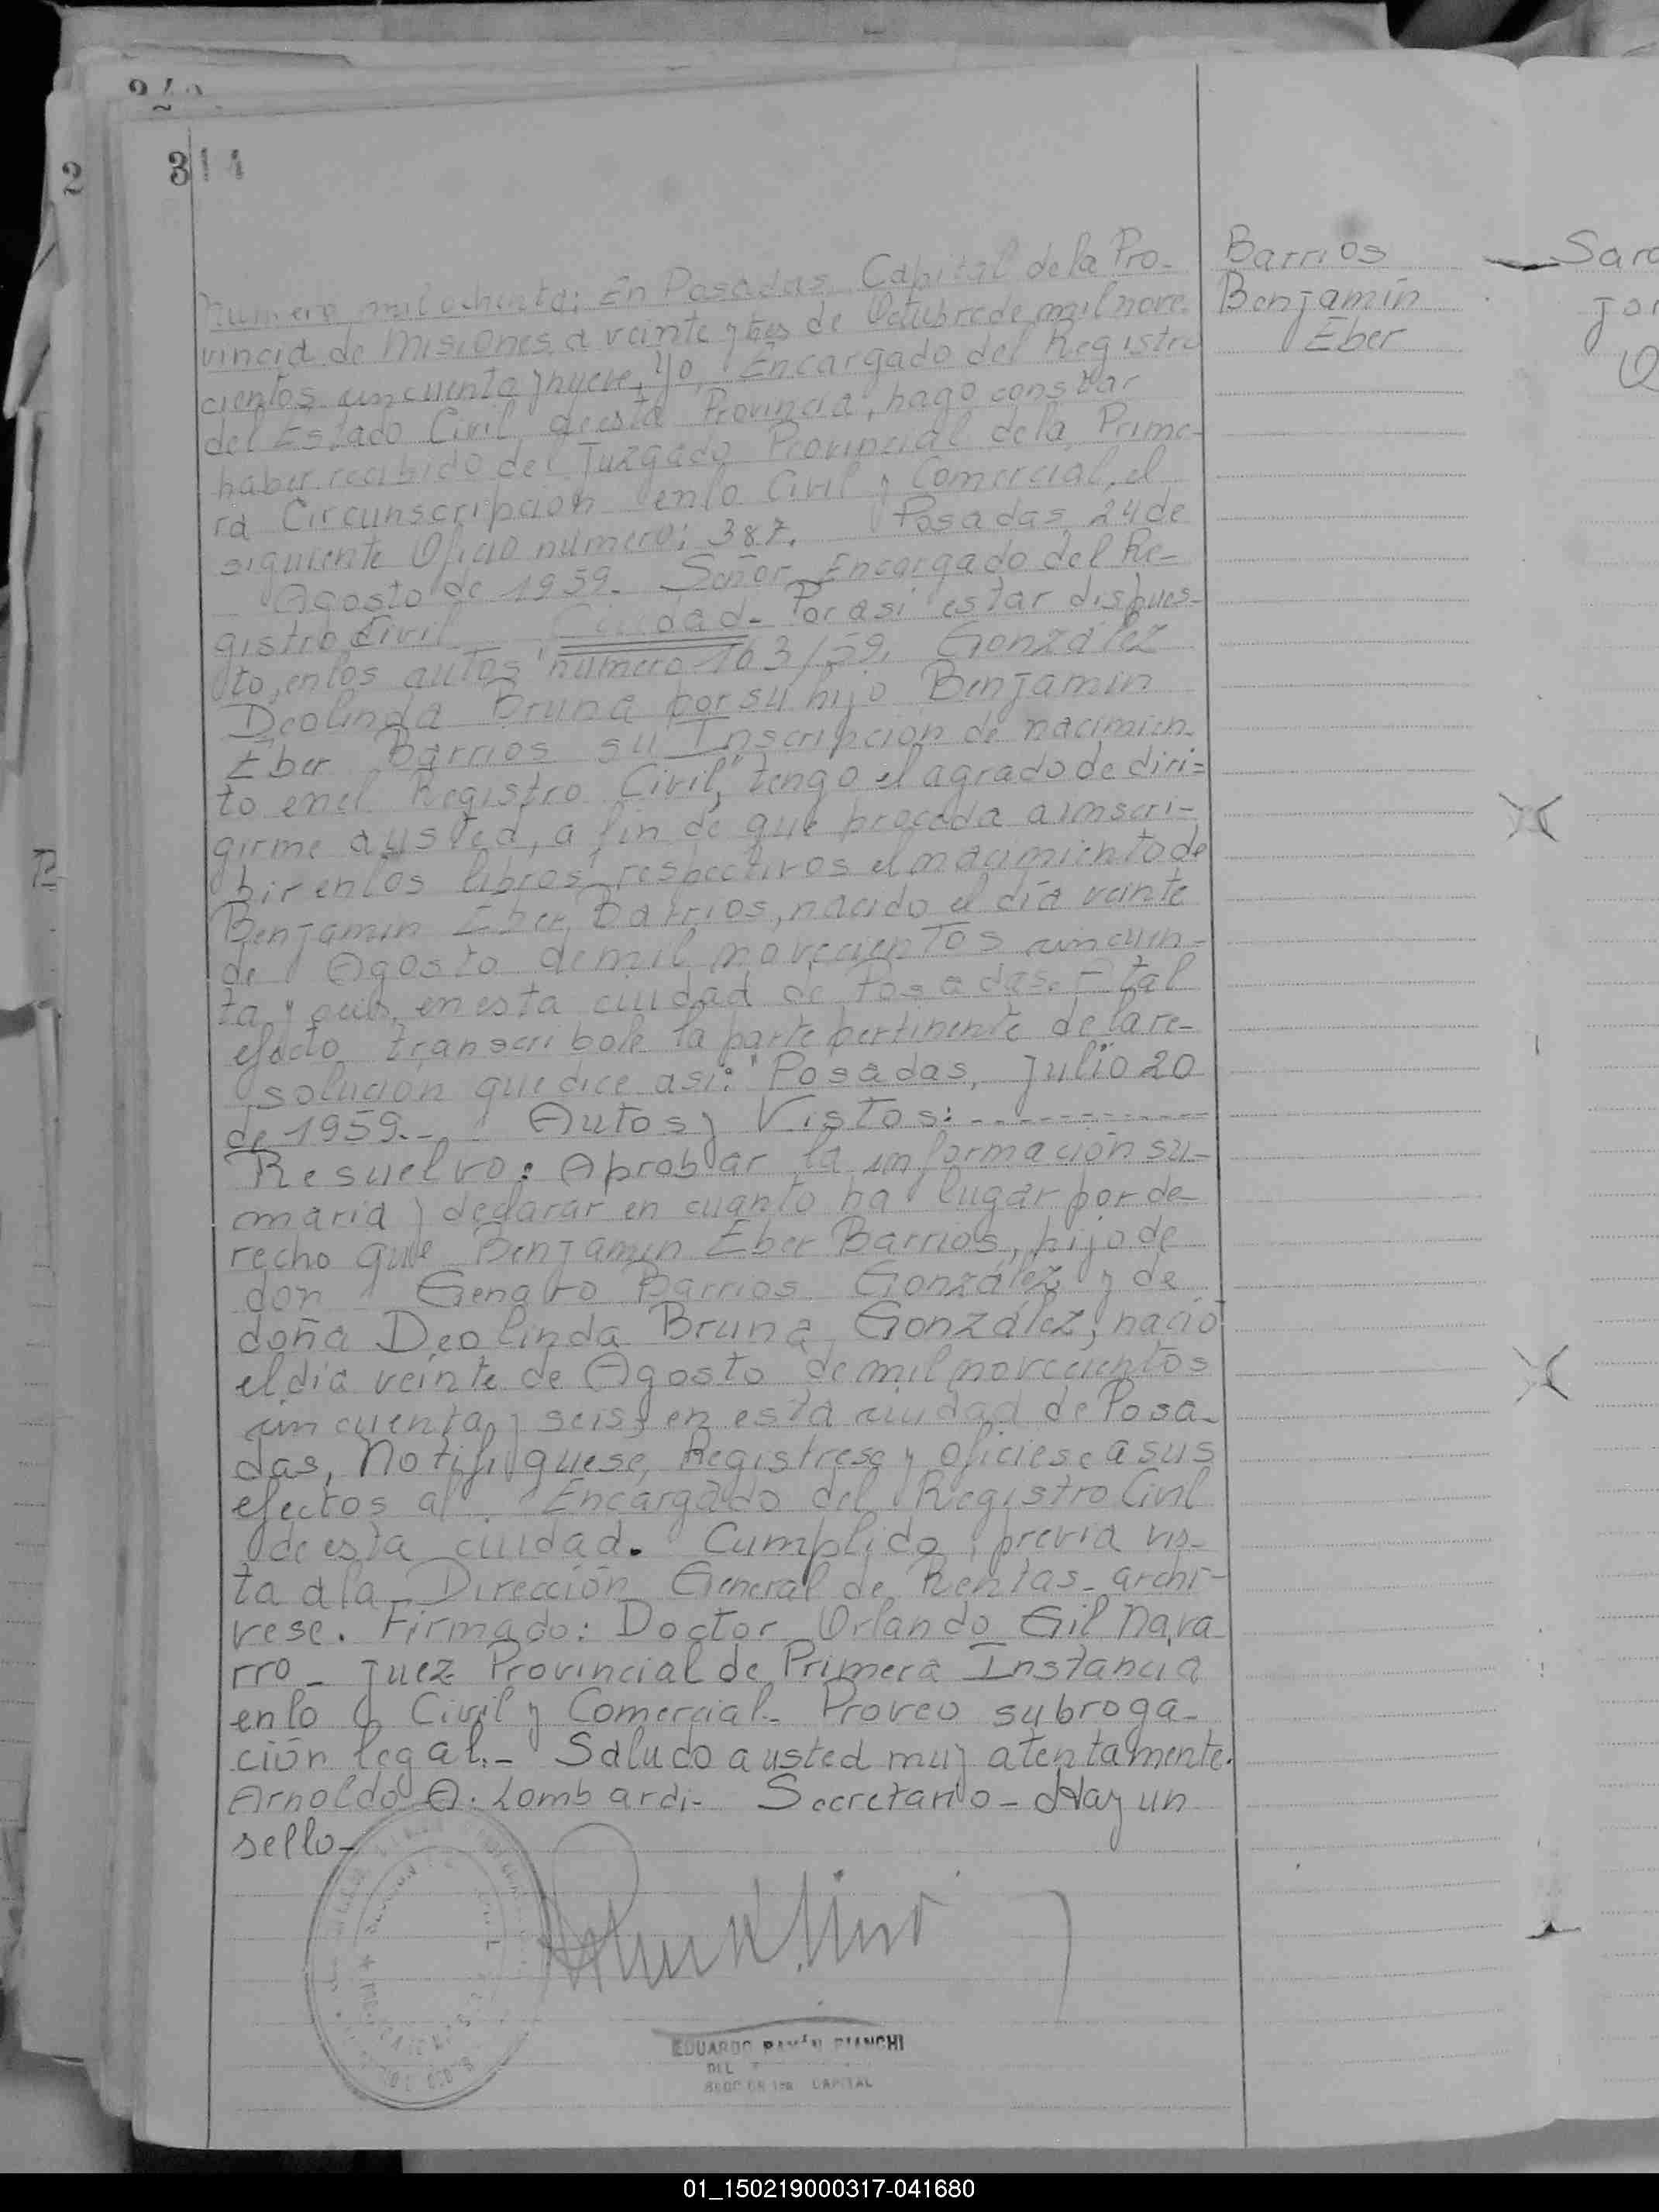 314
2
Barrios
Benjamín
Eber
Numero mil ochenta: En Posadas, Capital de la Pro-
vincia de Misiones a veinte y tres de Octubre de mil nove-
cientos cincuenta y nueve, Yo, Encargado del Registro
del Estado Civil de esta Provincia, hago constar
haber recibido del Juzgado Provincial de la Prime-
ra Circunscripcion en lo Civil y Comercial, el
siguiente Oficio numero: 387. Posadas, 24 de
Agosto de 1959. Señor Encargado del Re-
gistro Civil Ciudad- Por asi estar dispues-
to, en los autos "numero 163/59, González
Deolinda Bruna por su hijo Benjamin
Eber Barrios su Inscripcion de nacimien-
to en el Registro Civil", tengo el agrado de diri=
girme a usted, a fin de que proceda a inscri-
bir en los libros respectivos el nacimiento de
Benjamin Eber Barrios, nacido el día veinte
de Agosto de mil novecientos cincuen-
ta y seis, en esta ciudad de Posadas. A tal
efecto transcribole la parte pertinente de la re-
solución que dice asi: "Posadas, Julio 20
de 1959.- Autos y Vistos: - - - - - - - - - - - -
Resuelvo: Aprobar la informacion su-
maria y declarar en cuanto ha lugar por de-
recho que Benjamin Eber Barrios, hijo de
don Genaro Barrios González y de
doña Deolinda Bruna González, nació
el día veinte de Agosto de mil novecientos
cincuenta y seis, en esta ciudad de Posa-
das, Notifiquese, Registrese y oficiese a sus
efectos al Encargado del Registro Civil
de esta ciudad. Cumplido, previa vis-
ta a la Dirección General de Rentas- archi-
vese. Firmado: Doctor Orlando Gil Nava-
rro - Juez Provincial de Primera Instancia
en lo Civil y Comercial- Proveo subroga-
ción legal.- Saludo a usted muy atentamente.
Arnoldo A. Lombardi- Secretario- Hay un
sello-
EDUARDO RAMÓN BIANCHI
DEL
CAPITAL
Sara
01_150219000317-041680